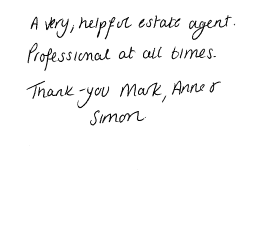 A very, helpful estate agent.
Professional at all times.
Thank-you Mark, Anne &
Simon.